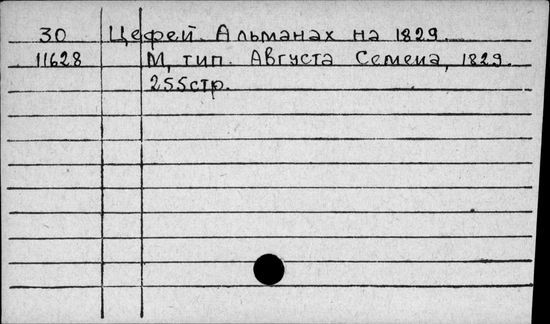 30 Цефей. Альманах на 1829.
11628 М, тип. Августа Семена, 1829.
255стр.